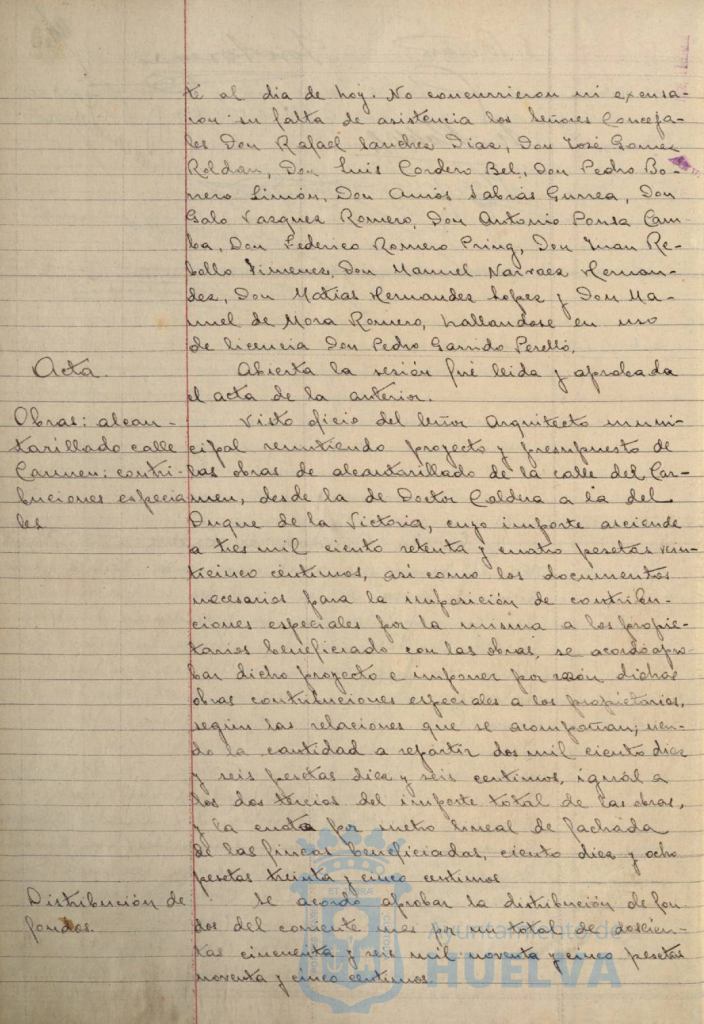 te al dia de hoy. No concurrieron ni excusa-
ron su falta de asistencia los Señores Conceja-
les Don Rafael Sanchez Diaz, Don José Gomez
Roldan, Don Luis Cordero Bel, Don Pedro Bo-
rrero Limón, Don Amós Sabrás Gurrea, Don
Galo Vazquez Romero, Don Antonio Ponsa Cam-
ba, Don Federico Romero Pring, Don Juan Re-
bollo Jimenez, Don Manuel Narvaez Hernan-
dez, Don Matias Hernandez Lopez y Don Ma-
nuel de Mora Romero, hallandose en uso
de licencia Don Pedro Garrido Perelló.
Acta.
Abierta la sesión fué leida y aprobada
el acta de la anterior.
Obras: alcan-
tarillado calle
Carmen: contri-
buciones especia
les
Visto oficio del Señor Arquitecto muni-
cipal remitiendo proyecto y presupuesto de
las obras de alcantarillado de la calle del Car-
men, desde la de Doctor Caldera a la del
Duque de la Victoria, cuyo importe asciende
a tres mil ciento setenta y cuatro pesetas vein-
ticinco centimos, asi como los documentos
necesarios para la imposición de contribu-
ciones especiales por la misma a los propie-
tarios beneficiado con las obras, se acordó apro-
bar dicho proyecto e imponer por razón dichas
obras contribuciones especiales a los propietarios,
según las relaciones que se acompañan; sien-
do la cantidad a repartir dos mil ciento diez
y seis pesetas diez y seis centimos, igual a
los dos tercios del importe total de las obras,
y la cuota por metro lineal de fachada
de las fincas beneficiadas, ciento diez y ocho
pesetas treinta y cinco centimos
Distribución de
fondos.
Se acordó aprobar la distribución de fon-
dos del corriente mes por un total de doscien-
tas cincuenta y seis mil noventa y cinco pesetas
noventa y cinco centimos
Ayuntamiento de
HUELVA